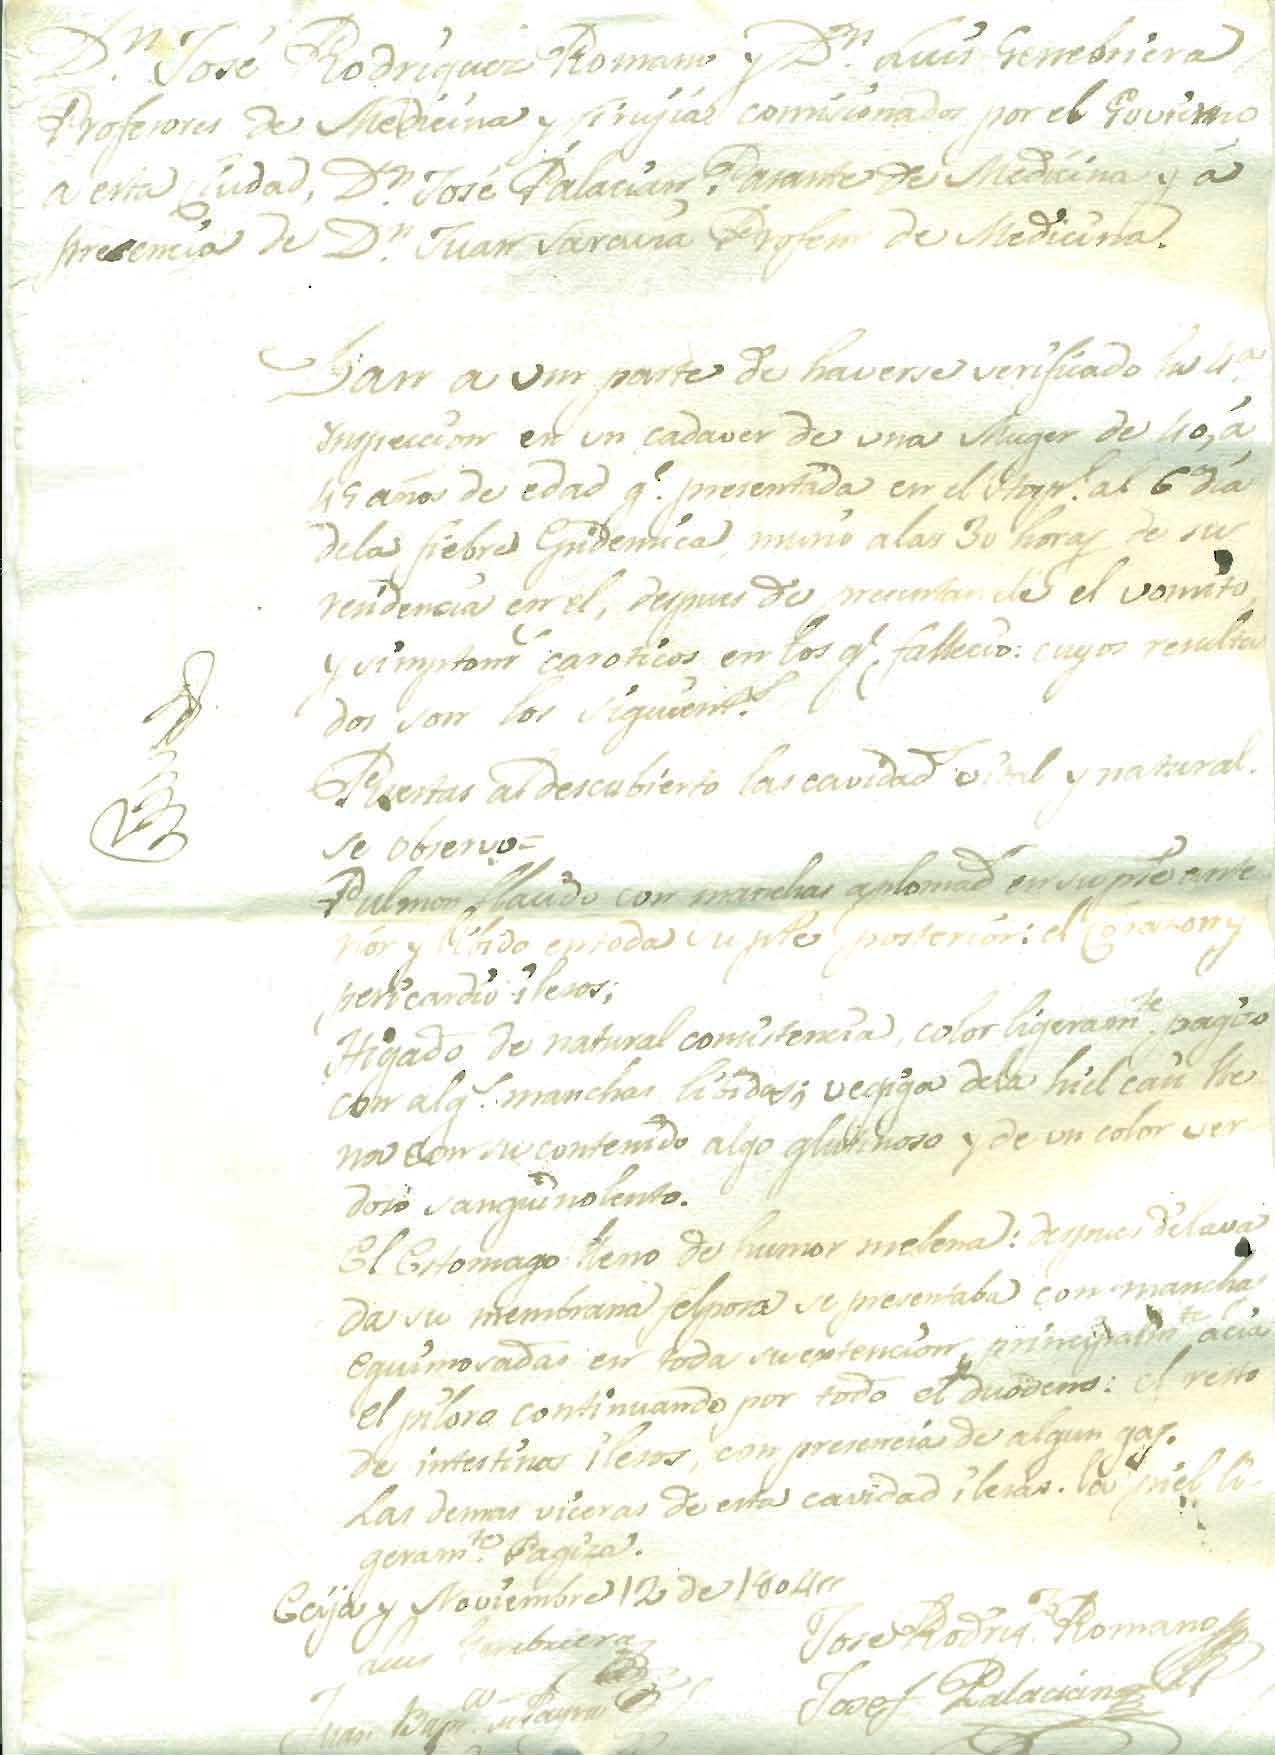 Dn. José Rodriguez Romano y Dn. Luis
Profesores de Medicina y Sirujia comisionados por el Govierno
a esta Ciudad, Dn. José Palacian, Pasante de Medicina y á
presencia de Dn. Juan Profesor de Medicina.
Dan a parte de haverse verificado la 4a
Inspeccion en un cadaver de una Muger de 40, a
45 años de edad q.e presentada en el al 6 dia
dela fiebre Epidemica, murio a las 30 horas de su
residencia en el, despues de el vomito,
y caroticos en los q.e fallecio: cuyos resulta
dos son los siguient.s
Puestas al descubierto las cavidad.s vital y natural.
se observo=
Pulmon flacido con manchas aplomad.s en su pte ante
rior y libido en toda su pte posterior: el Corazon y
pericardio ilesos;
Higado de natural consistencia, color ligeram.te pagizo
con alg.s manchas libidas; vegiga dela hiel casi lle
na con su contenido algo glutinoso y de un color ver
doso sanguinolento.
El Estomago lleno de humor melena: despues de lava
da su membrana felposa se presentaba con manchas
equimosadas en toda su extencion, principalm.te acia
el piloro continuando por todo el duodeno: el resto
de intestinos ilesos, con presencia de algun gas.
Las demas viceras de esta cavidad ilesas. la piel li-
geram.te Pagiza.
Ecija y Noviembre 12 de 1804
Luis José Rodrig.z Romano
Juan Josef Palacian